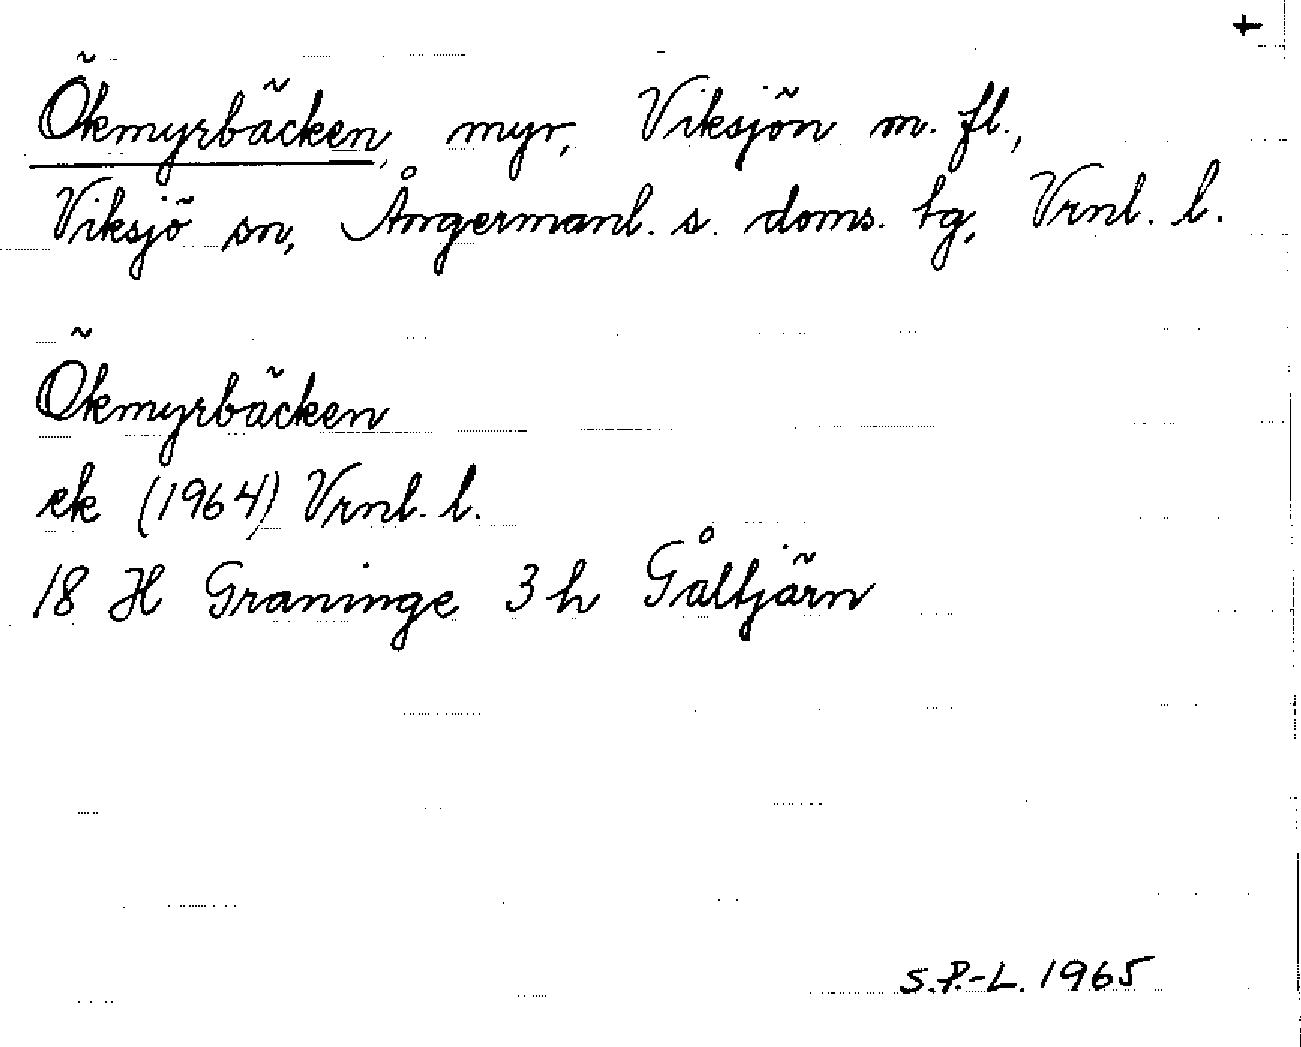 +
Ökmyrbäcken, myr, Viksjön m. fl.,
Viksjö sn, Ångermanl. s. doms. tg, Vrnl. l.
Ökmyrbäcken
ek (1964) Vrnl. l.
18 H Graninge 3 h Gåltjärn
S.P.-L. 1965